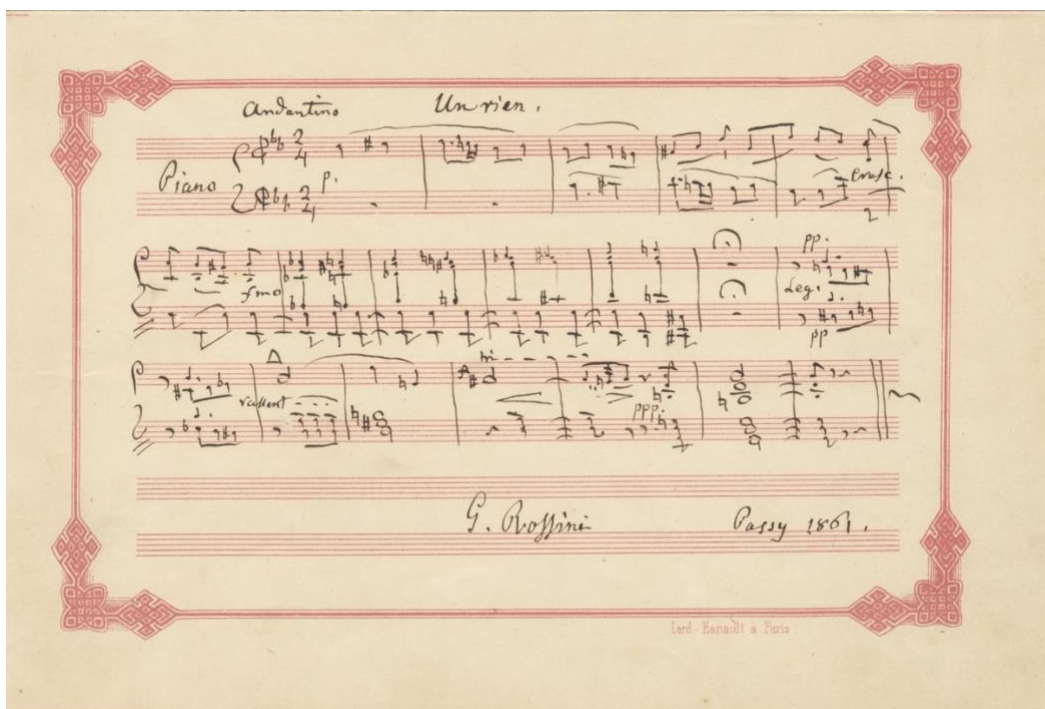 Andantino Un rien.
Piano 2 4 p. Cresc.
2 4
fmo pp.
Leg.
pp
rallent tr
ppp.
G. Rossini Passy 1861.
Lard-Esnault à Paris